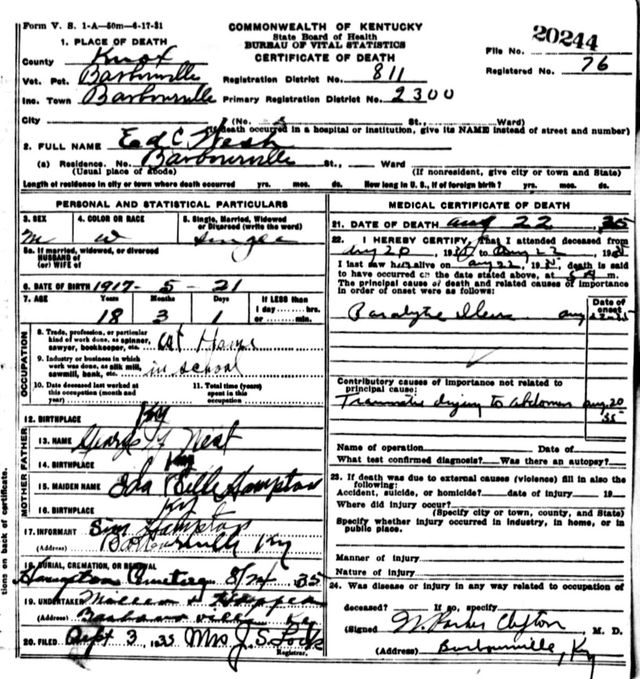 Form V. S. 1-A—50m—6-17-31
COMMONWEALTH OF KENTUCKY
State Board of Health
BUREAU OF VITAL STATISTICS
CERTIFICATE OF DEATH
20244
File No.
Registered No. 76
1. PLACE OF DEATH
County Knox
Vot. Pct. Barbourville
Registration District No. 811
Inc. Town Barbourville
Primary Registration District No. 2300
City (No. St., Ward)
(If death occurred in a hospital or institution, give its NAME instead of street and number)
2. FULL NAME Ed C.
(a) Residence. No. Barbourville St., Ward
(Usual place of abode) (If nonresident, give city or town and State)
Length of residence in city or town where death occurred yrs. mos. ds. How long in U. S., if of foreign birth? yrs. mos. ds.
PERSONAL AND STATISTICAL PARTICULARS
3. SEX 4. COLOR OR RACE 5. Single, Married, Widowed
or Divorced (write the word)
M W Single
5a. If married, widowed, or divorced
HUSBAND of
(or) WIFE of
6. DATE OF BIRTH 1917-5-21
7. AGE Years Months Days If LESS than
1 day hrs.
or min.
18 3 1
OCCUPATION
8. Trade, profession, or particular
kind of work done, as spinner,
sawyer, bookkeeper, etc. at Home
9. Industry or business in which
work was done, as silk mill,
sawmill, bank, etc. in school
10. Date deceased last worked at
this occupation (month and
year)
11. Total time (years)
spent in this
occupation
12. BIRTHPLACE Ky
FATHER
13. NAME George
14. BIRTHPLACE Ky
MOTHER
15. MAIDEN NAME Ida Belle Hampton
16. BIRTHPLACE Ky
17. INFORMANT Sim Hampton
(Address) Barbourville Ky
18. BURIAL, CREMATION, OR REMOVAL
Hampton Cemetery 8/24 35
19. UNDERTAKER
(Address) Barbourville Ky
20. FILED Sept 3, 1935 Mrs J. S. Lock
Registrar.
MEDICAL CERTIFICATE OF DEATH
21. DATE OF DEATH Aug 22 35
22. I HEREBY CERTIFY, That I attended deceased from
Aug 20, 19 to Aug 22, 19
I last saw h alive on Aug 22, 19 death is said
to have occurred on the date stated above, at m.
The principal cause of death and related causes of importance
in order of onset were as follows:
Date of
onset
Paralytic Ileus
Contributory causes of importance not related to
principal cause:
Traumatic injury to Abdomen Aug 20
35
Name of operation Date of
What test confirmed diagnosis? Was there an autopsy?
23. If death was due to external causes (violence) fill in also the
following:
Accident, suicide, or homicide? date of injury 19
Where did injury occur?
(Specify city or town, county, and State)
Specify whether injury occurred in industry, in home, or in
public place.
Manner of injury
Nature of injury
24. Was disease or injury in any way related to occupation of
deceased? If so, specify
(Signed) Clifton M. D.
(Address) Barbourville, Ky
tions on back of certificate.